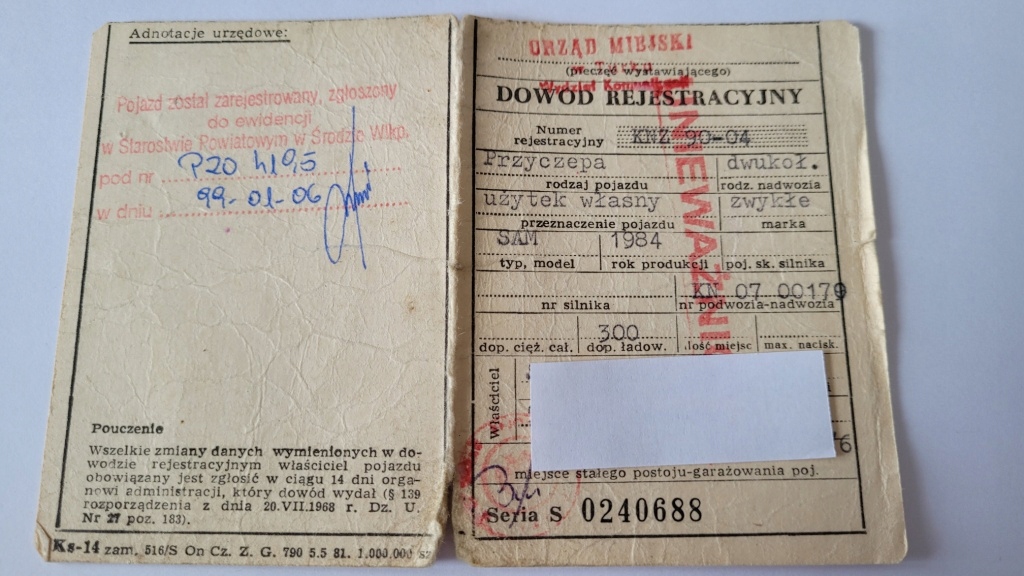 Adnotacje urzędowe:
Pojazd został zarejestrowany, zgłoszony
do ewidencji
w Starostwie Powiatowym w Środzie Wlkp.
pod nr PZO
w dniu 99-01-06
Pouczenie
Wszelkie zmiany danych wymienionych w do-
wodzie rejestracyjnym właściciel pojazdu
obowiązany jest zgłosić w ciągu 14 dni orga-
nowi administracji, który dowód wydał (§ 139
rozporządzenia z dnia 20.VII.1968 r. Dz. U.
Nr 27 poz. 183).
Ks-14 zam. 516/S On Cz. Z. G. 790 5.5 81. 1.000.000 sz
URZĄD MIEJSKI
(pieczęć wystawiającego)
Wydział
DOWÓD REJESTRACYJNY
Numer
rejestracyjny KNZ 90-04
Przyczepa dwukoł.
rodzaj pojazdu rodz. nadwozia
użytek własny zwykłe
przeznaczenie pojazdu marka
SAM 1984
typ, model rok produkcji poj. sk. silnika
KN 07 00179
nr silnika nr podwozia-nadwozia
300
dop. cięż. cał. dop. ładow. ilość miejsc max. nacisk.
UNIEWAŻNIK
Właściciel
6
miejsce stałego postoju-garażowania poj.
Seria S 0240688